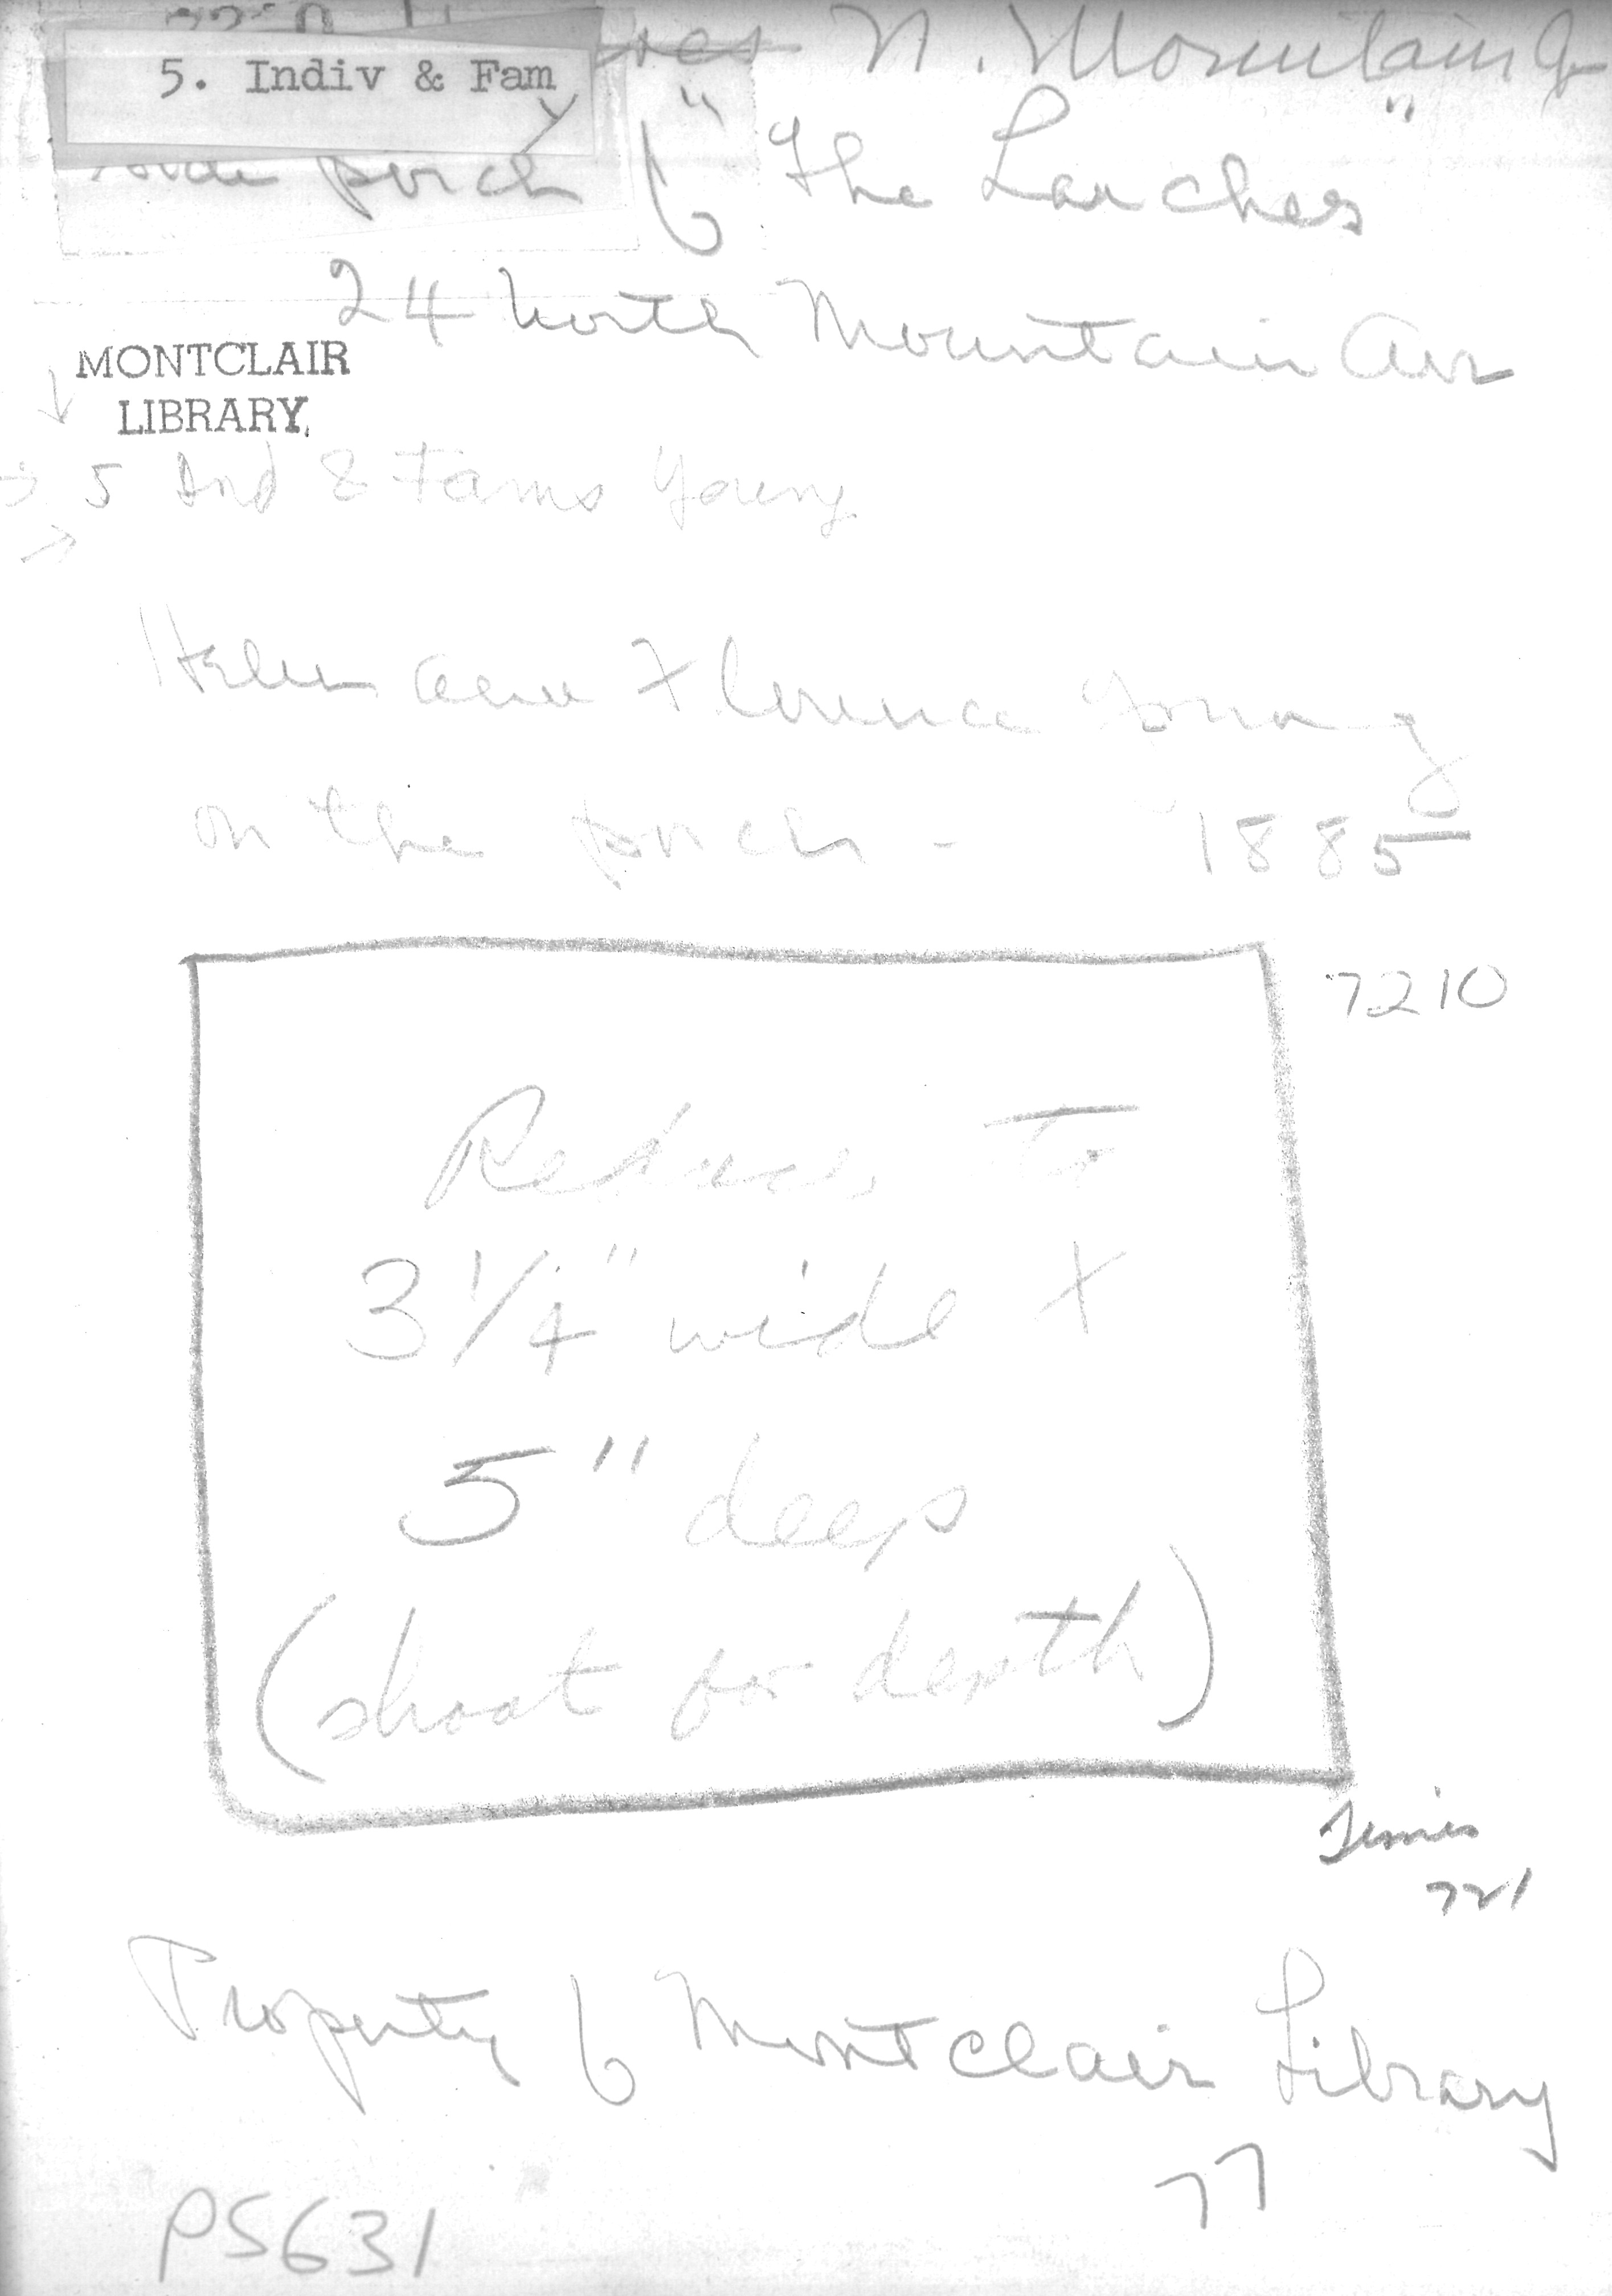 N. Mountain
5. Indiv & Fam
side porch of "The Larches"
24 North Mountain Ave
MONTCLAIR
LIBRARY
5 Ind & Fams Young
Helen and Florence Young
on the porch - 1885
7210
Reduce to
3 1/4" wide x
5" deep
(shoot for depth)
721
Property of Montclair Library
77
PS631